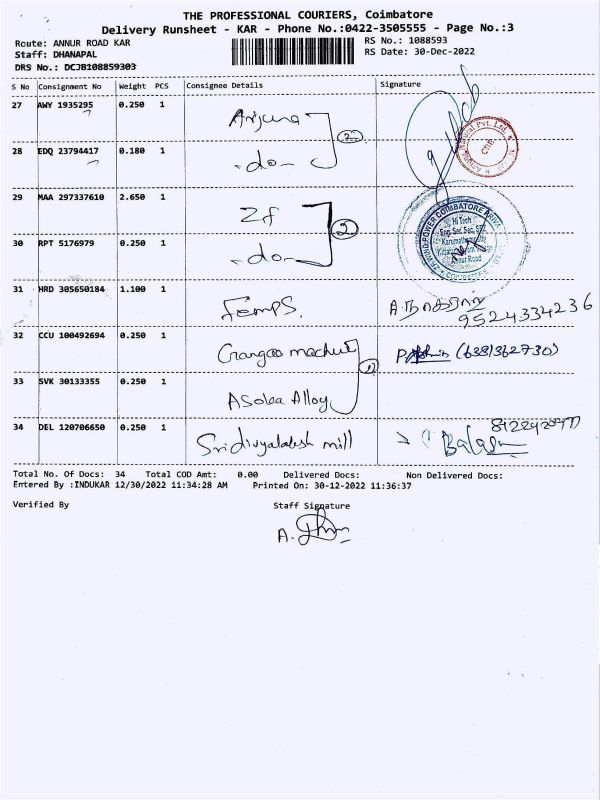 THE PROFESSIONAL COURIERS, Coimbatore
Delivery Runsheet - KAR - Phone No.:0422-3505555 - Page No.:3
Route: ANNUR ROAD KAR
RS No.: 1088593
Staff: DHANAPAL
RS Date: 30-Dec-2022
DRS No.: DCJB108859303
S No Consignment No Weight PCS Consignee Details Signature
27 AWY 1935295 0.250 1 Arjuna
28 EDQ 23794417 0.180 1 -do-
2
29 MAA 297337610 2.650 1 Zf
30 RPT 5176979 0.250 1 -do-
2
31 HRD 305650184 1.100 1
9524334236
32 CCU 100492694 0.250 1 (6381362730)
33 SVK 30133355 0.250 1 Alloy
34 DEL 120706650 0.250 1 mill
Total No. Of Docs: 34 Total COD Amt: 0.00 Delivered Docs: Non Delivered Docs:
Entered By :INDUKAR 12/30/2022 11:34:28 AM Printed On: 30-12-2022 11:36:37
Verified By Staff Signature